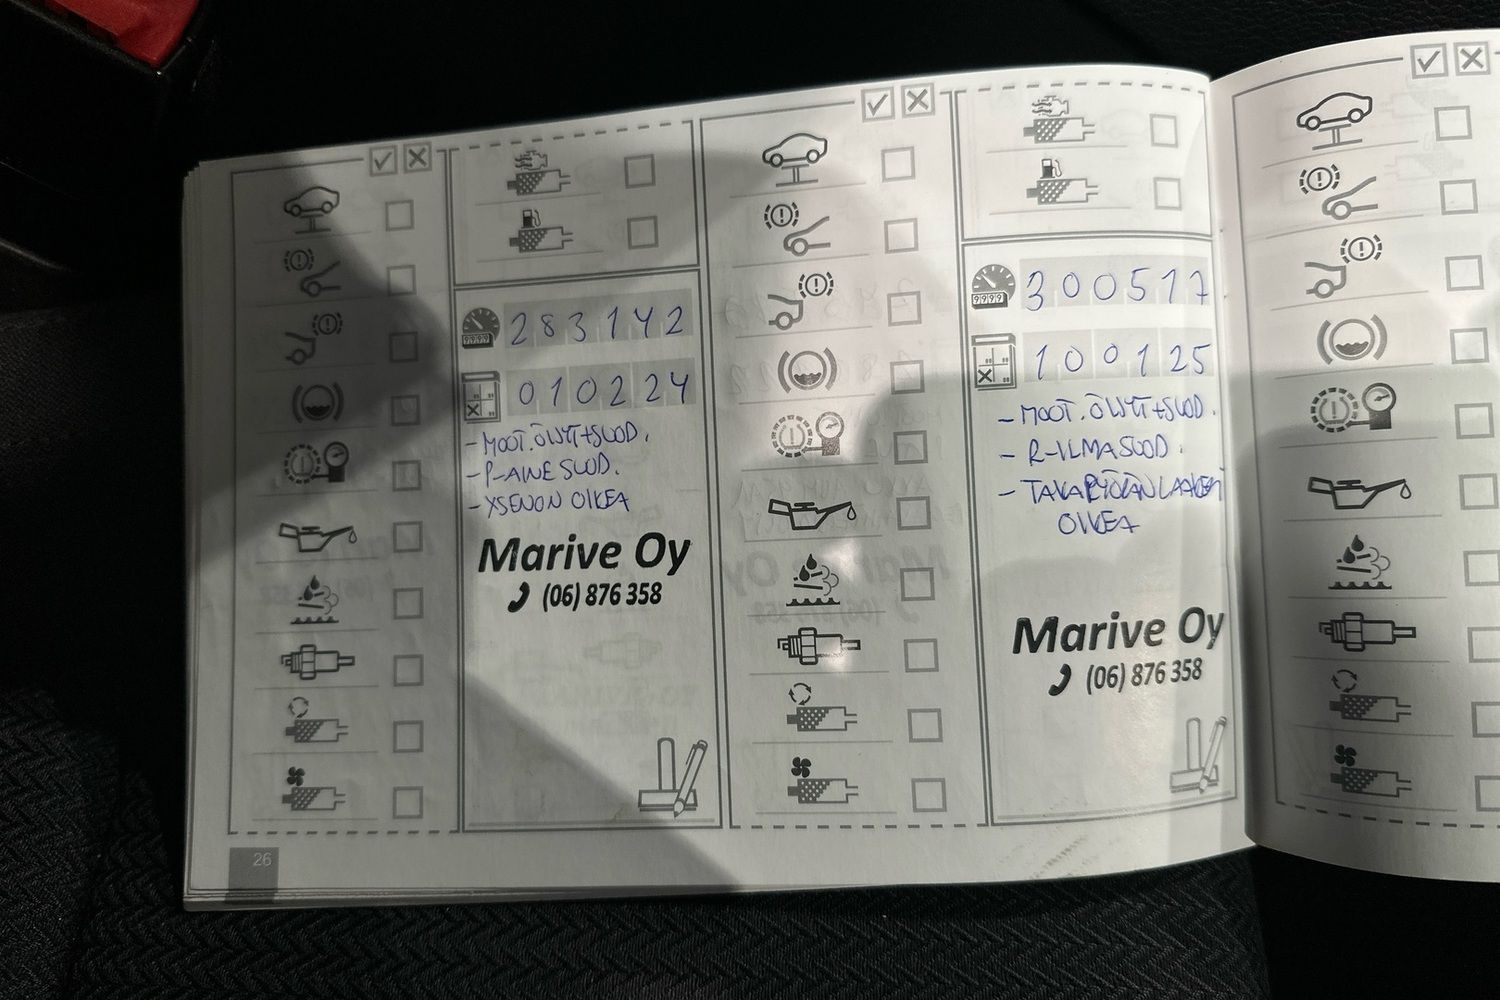 283142
010224
- MOOT. ÖLJYT+SUOD.
- P-AINE SUOD.
- XSENON OIKEA
Marive Oy
(06) 876 358
26
300517
100125
- MOOT. ÖLJYT+SUOD.
- R-ILMASUOD.
- TAKAPYÖRÄN LAAKERI
OIKEA
Marive Oy
(06) 876 358